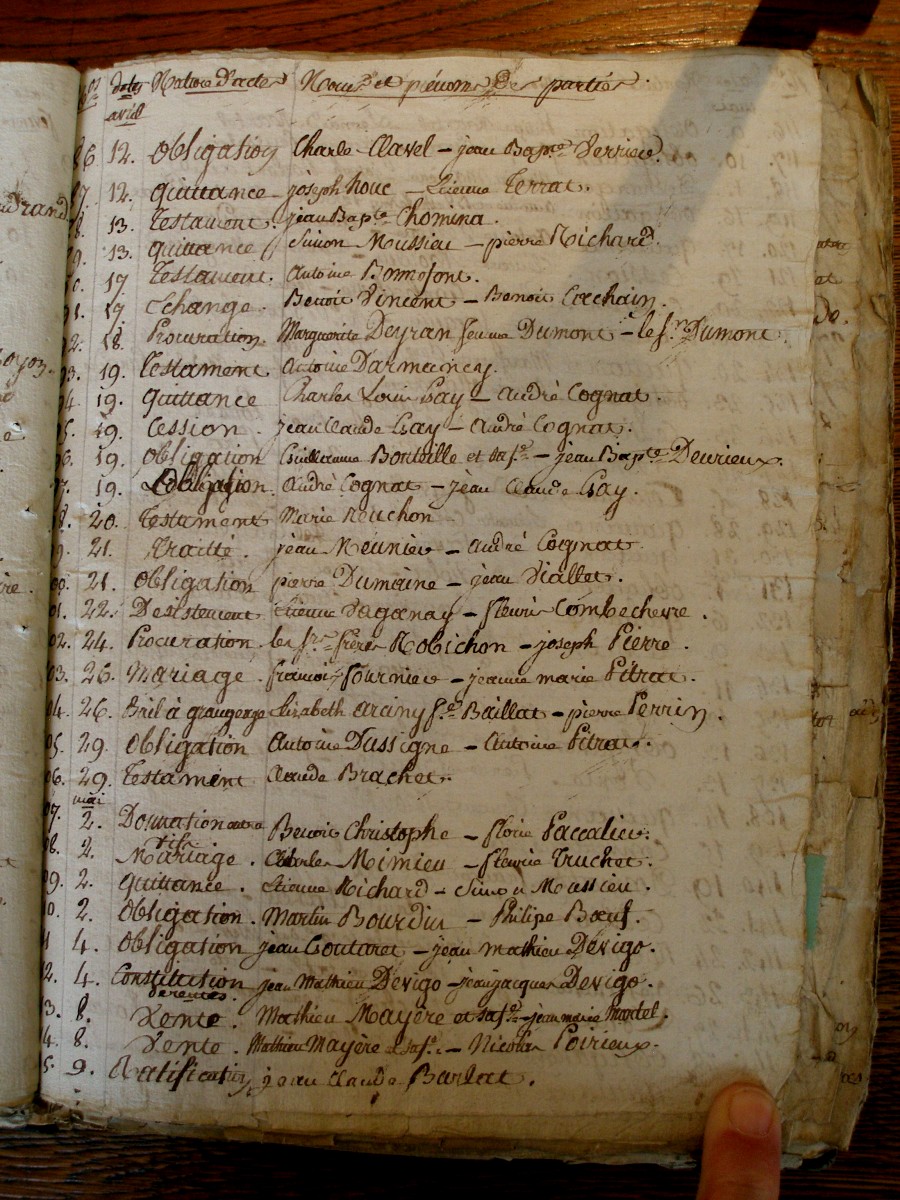 dates Nature D'actes Noms et prénoms Des parties.
avril
86 12. Obligation Charle Clavel – jean Bap.te Verrieu.
12. quittance joseph Roue – Etienne Terrat.
8. 13. Testament. jean Bap.te Chomina.
9. 13. quittance // Simon Moussieu – pierre Richard.
0. 17 Testament. Antoine Bonnefont.
1. 17 Echange. Benoit Vincent – Benoit Cachain.
2. 18. Procuration. Marguerite Deyran femme Dumont – le s.r Dumont.
93. 19. Testament Antoine Darmancy.
94. 19. quittance Charles Louis Gay – André Cognat.
5. 19. Cession. jean Claude Gay – André Cognat.
96. 19. Obligation Guillaume Bouteille et sa f.e – jean Bap.te Devrieux.
7. 19. Obligation. André Cognat – jean Claude Gay.
8. 20. Testament Marie Reuchon
9. 21. Traitté. jean Meunier – André Cognat.
00. 21. Obligation pierre Dumaine – jean Viallet.
01. 22. Desistement Etienne Vaganay – fleurie Combechevre.
02. 24. Procuration. les s.rs frères Robichon – joseph Pierre.
03. 26. Mariage. françois fournier – jeanne marie Pitrat.
04. 26. Bail à grangeage Elizabeth arciny f.e Baillat – pierre Perrin.
05. 29. Obligation Antoine Dassigne – Antoine Pitrat.
06. 29. Testament Claude Brachet.
mai
07. 2. Donnation entre vifs Benoit Christophe – florie Paccalier.
08. 2. Mariage. Charles Mimieu – fleurie Truchet.
09. 2. Quittance. Etienne Richard – Simon Moussieu.
10. 2. Obligation. Martin Bourdin – Philipe Bœuf.
4. Obligation jean Coutaret – jean mathieu Devigo.
12. 4. Constitution de rentes. jean Mathieu Devigo – jean jacques Devigo.
3. 8. Vente. Mathieu Mayère et sa f.e – jean marie Martel.
4. 8. Vente. Mathieu Mayère et sa f.e – Nicolas Poirieux.
5. 9. Ratification jean Claude Barlat.